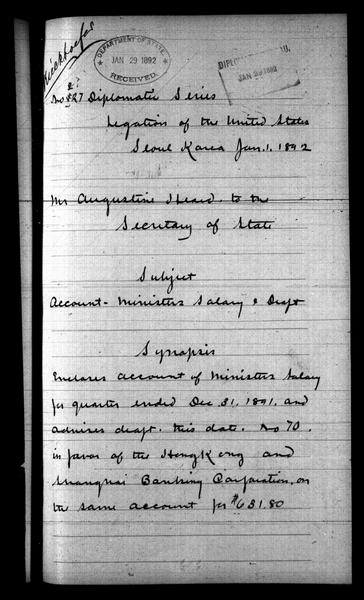 DEPARTMENT OF STATE,
JAN 29 1892
RECEIVED.
JAN 29 1892
No 227 Diplomatic Series
Legation of the United States
Seoul Korea Jan. 1. 1892
Mr Augustine Heard. to the
Secretary of State
Subject
Account - Ministers Salary & Draft
Synopsis
Encloses account of Ministers Salary
for quarter ended Dec. 31, 1891, and
advises draft. this date. No 70.
in favor of the HongKong and
Shanghai Banking Corporation, on
the same account for $631.80